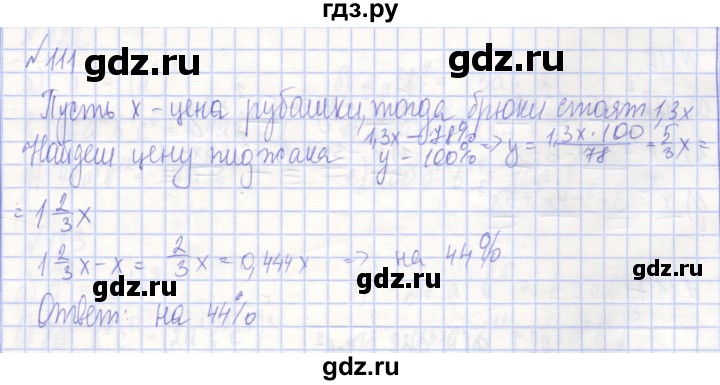 гдз.ру
№111
gdz.ru gdz.ru
Пусть x – цена рубашки, тогда брюки стоят 1,3x
Найдем цену пиджака 1,3x – 78% y – 100% => y = 1,3x·100/78 = 5/3 x =
gdz.ru
= 1 2/3 x
gdz.ru
1 2/3 x – x = 2/3 x = 0,444x => на 44%
gdz.ru gdz.ru
Ответ: на 44%
gdz.ru
gdz.ru